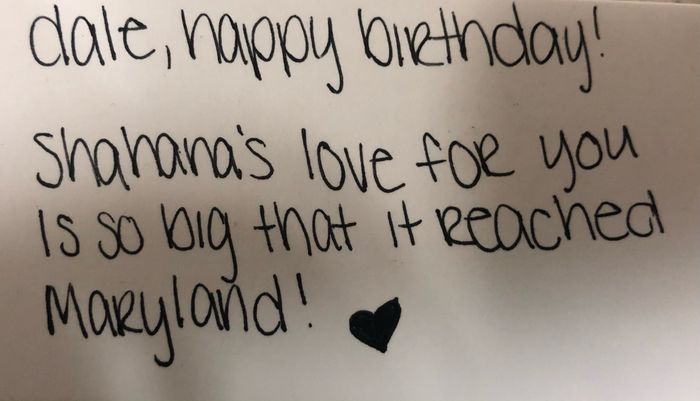 dale, happy birthday!
Shahana's love for you
is so big that it reached
Maryland! ♥